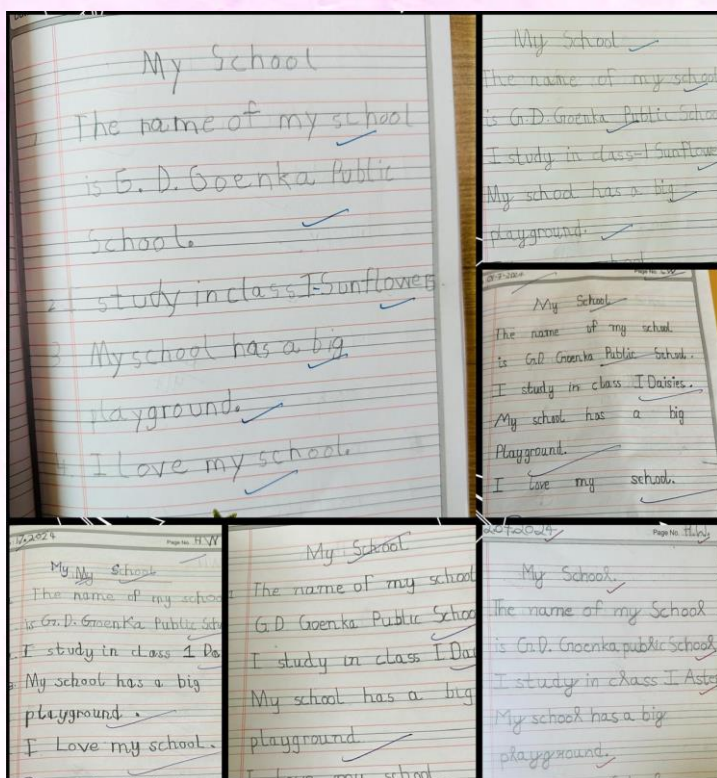 My School
1 The name of my school
is G. D. Goenka Public
School.
2 I study in class I-Sunflower.
3 My school has a big
playground.
4 I Love my school.
My School
The name of my school
is G.D. Goenka Public School
I study in class-I Sunflower
My school has a big
playground.
Page No. C.W
My School
The name of my school
is G.D Goenka Public School.
I study in class I Daisies.
My school has a big
Playground.
I love my school.
Page No. H.W
My My School
The name of my school
is G.D. Goenka Public Sch
I study in class 1 Da
My school has a big
playground.
I Love my school.
My School
The name of my school
G.D Goenka Public School
I study in class I Dai
My school has a big
playground
I love my school
Page No. H.W.
My School.
The name of my School
is G.D. Goenka public School
I study in class I Aste
My school has a big
playground.